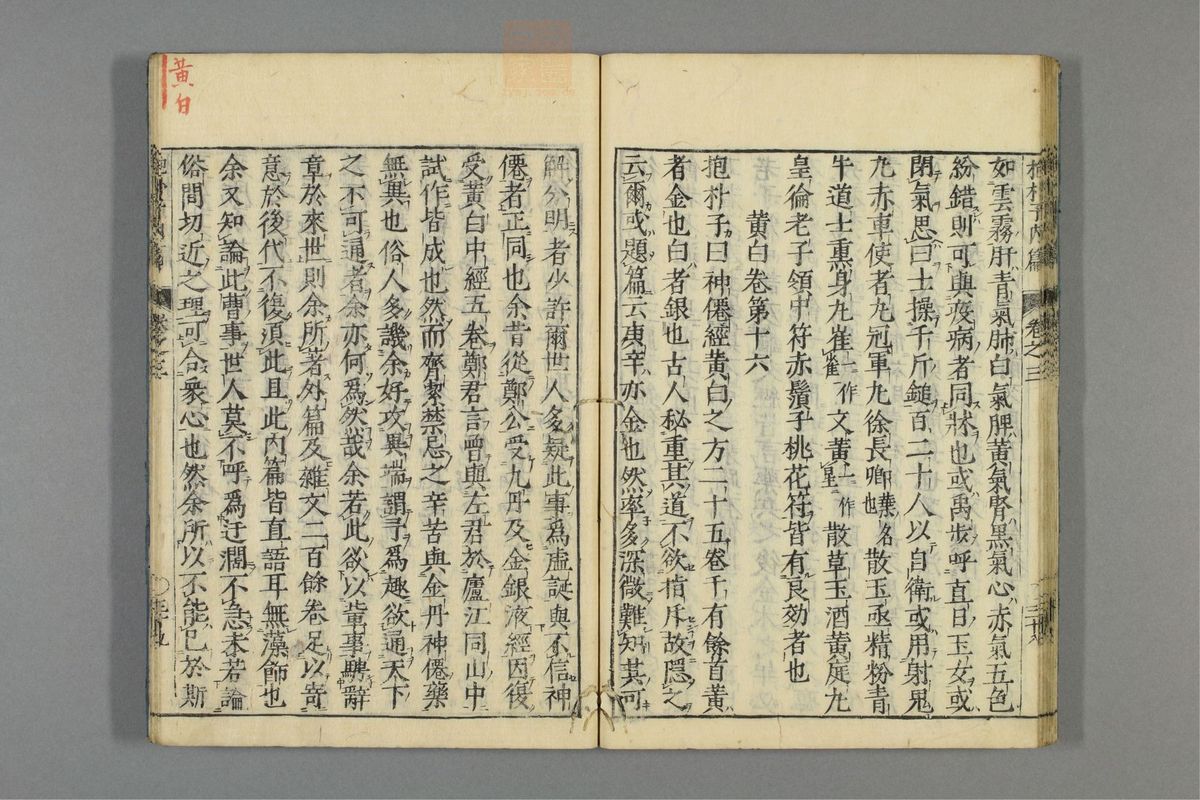 抱朴子内篇 卷之三
如雲霧肝青氣肺白氣脾黃氣腎黑氣心赤氣五色
紛錯則可與疫病者同牀也或禹步呼直日玉女或
閉氣思曰士操千斤鎚百二十人以自衛或用射鬼
丸赤車使者丸冠軍丸徐長卿藥名也散玉函精粉青
牛道士熏身丸崔一作雀文黃一作星散草玉酒黃庭丸
皇倫老子領中符赤鬚子桃花符皆有良効者也
黃白卷第十六
抱朴子曰神僊經黃白之方二十五卷千有餘首黃
者金也白者銀也古人秘重其道不欲指斥故隱之
云爾或題篇云庚辛亦金也然率多深微難知其可
黃白
解分明者少許爾世人多疑此事爲虛誕與不信神
僊者正同也余昔從鄭公受九丹及金銀液經因復
受黃白中經五卷鄭君言曾與左君於廬江同山中
試作皆成也然而齊潔禁忌之辛苦與金丹神僊藥
無異也俗人多譏余好攻異端謂予爲趣欲通天下
之不可通者余亦何爲然哉余若此欲以軰事騁辭
章於來世則余所著外篇及雜文二百餘卷足以寄
意於後代不復須此且此内篇皆直語耳無藻飾也
余又知論此曹事世人莫不呼爲迂濶不急未若論
俗間切近之理可合衆心也然余所以不能已於斯